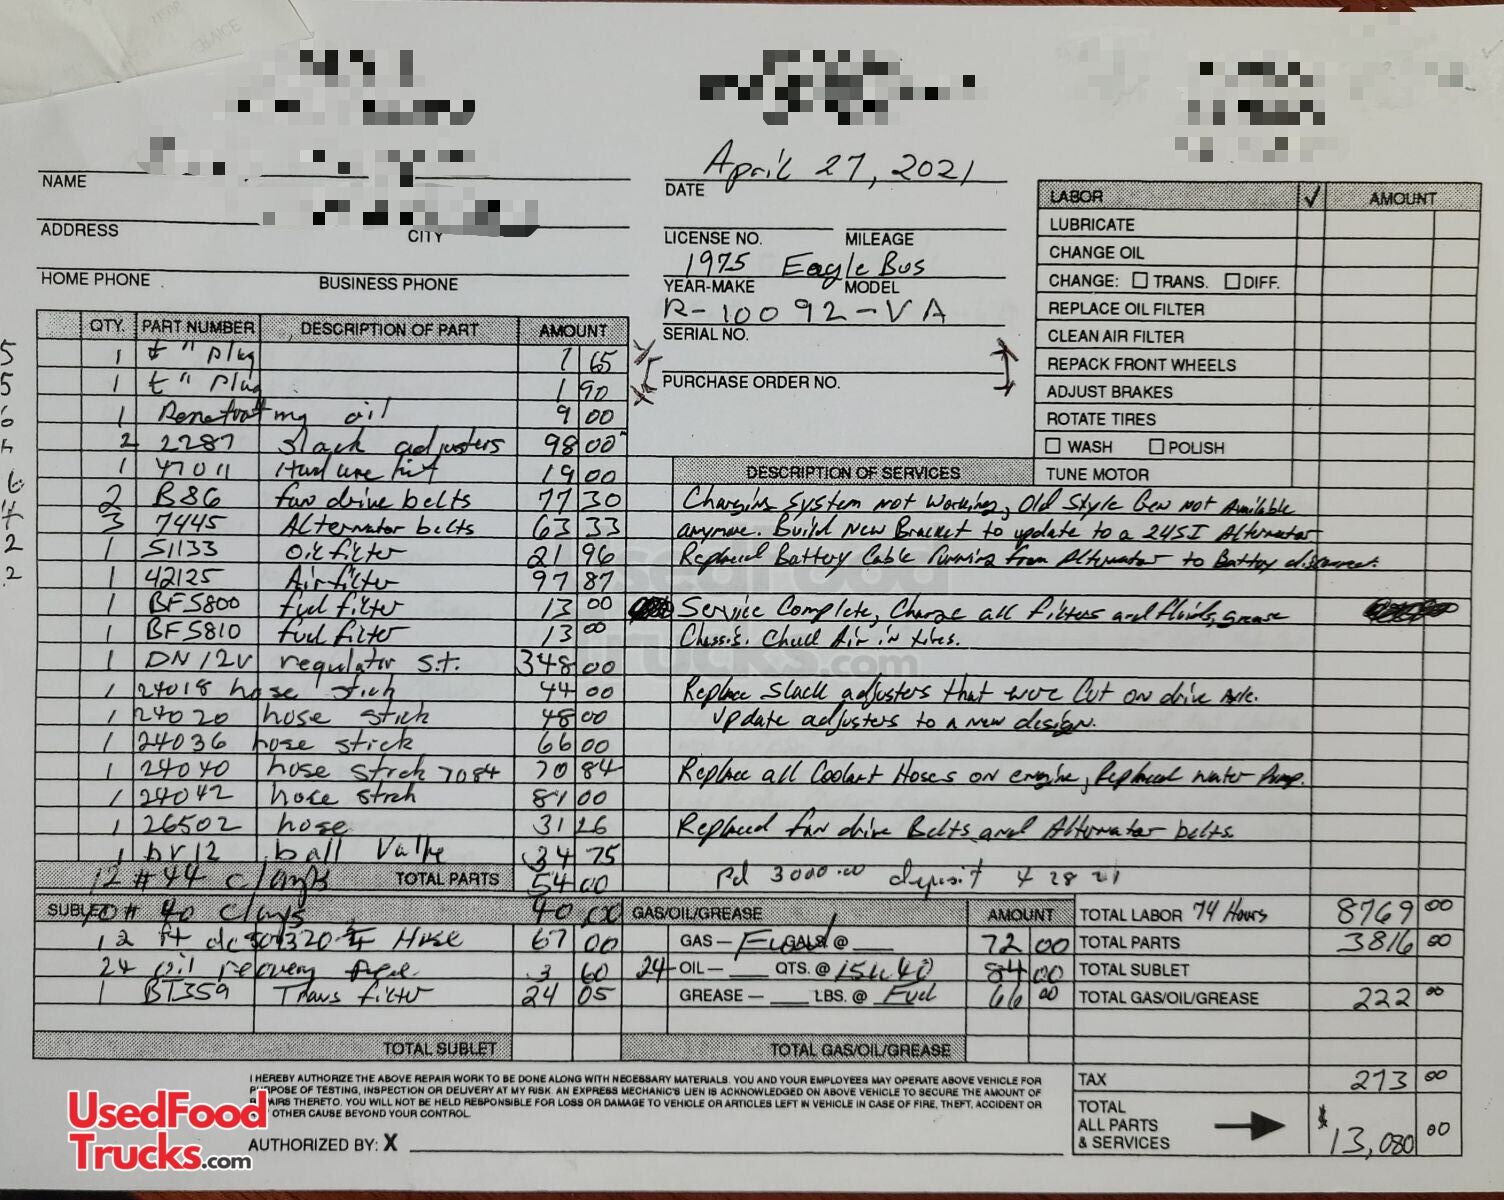 April 27, 2021
NAME
DATE
ADDRESS
CITY
LICENSE NO.
MILEAGE
1975 Eagle Bus
HOME PHONE
BUSINESS PHONE
YEAR-MAKE
MODEL
R-10092-VA
SERIAL NO.
PURCHASE ORDER NO.
LABOR ✓ AMOUNT
LUBRICATE
CHANGE OIL
CHANGE: ☐ TRANS. ☐ DIFF.
REPLACE OIL FILTER
CLEAN AIR FILTER
REPACK FRONT WHEELS
ADJUST BRAKES
ROTATE TIRES
☐ WASH ☐ POLISH
TUNE MOTOR
QTY. PART NUMBER DESCRIPTION OF PART AMOUNT
1 " plug 65
1 " plug 1 90
1 Penetrating oil 9 00
2 2287 slack adjusters 98 00
1 47011 Hardware kit 19 00
2 B86 fan drive belts 77 30
3 7445 Alternator belts 63 33
1 51133 oil filter 21 96
1 42125 Air filter 97 87
1 BF5800 fuel filter 13 00
1 BF5810 fuel filter 13 00
1 DN12V regulator s.t. 348 00
1 24018 hose stick 44 00
1 24020 hose stick 48 00
1 24036 hose stick 66 00
1 24040 hose stick 7084 70 84
1 24042 hose stick 81 00
1 26502 hose 31 26
1 BV12 ball Valve 34 75
12 #44 clamps TOTAL PARTS 54 00
SUBLET 10# 40 clamps 40 00
12 ft Hose 67 00
24 oil recovery 3 60
1 BT359 Trans filter 24 05
TOTAL SUBLET
DESCRIPTION OF SERVICES
Charging System not working, Old Style Gen not Available
anymore. Build New Bracket to update to a 24SI Alternator
Replaced Battery Cable running from Alternator to Battery disconnect.
Service Complete, Change all filters and fluids, grease
Chassis. Check Air in tires.
Replace Slack adjusters that were Cut on drive Axle.
Update adjusters to a new design.
Replace all Coolant Hoses on engine, Replaced water Pump.
Replaced fan drive Belts and Alternator belts.
Pd 3000.00 deposit 4 28 21
GAS/OIL/GREASE AMOUNT
GAS— GALS @ 72 00
24 OIL— QTS. @ 15W40 84 00
GREASE— LBS. @ Fuel 66 00
TOTAL GAS/OIL/GREASE
TOTAL LABOR 74 Hours 8769 00
TOTAL PARTS 3816 00
TOTAL SUBLET
TOTAL GAS/OIL/GREASE 222 00
TAX 273 00
TOTAL
ALL PARTS
& SERVICES $13,080 00
I HEREBY AUTHORIZE THE ABOVE REPAIR WORK TO BE DONE ALONG WITH NECESSARY MATERIALS. YOU AND YOUR EMPLOYEES MAY OPERATE ABOVE VEHICLE FOR
PURPOSE OF TESTING, INSPECTION OR DELIVERY AT MY RISK. AN EXPRESS MECHANIC'S LIEN IS ACKNOWLEDGED ON ABOVE VEHICLE TO SECURE THE AMOUNT OF
REPAIRS THERETO. YOU WILL NOT BE HELD RESPONSIBLE FOR LOSS OR DAMAGE TO VEHICLE OR ARTICLES LEFT IN VEHICLE IN CASE OF FIRE, THEFT, ACCIDENT OR
OTHER CAUSE BEYOND YOUR CONTROL.
AUTHORIZED BY: X
UsedFood
Trucks.com